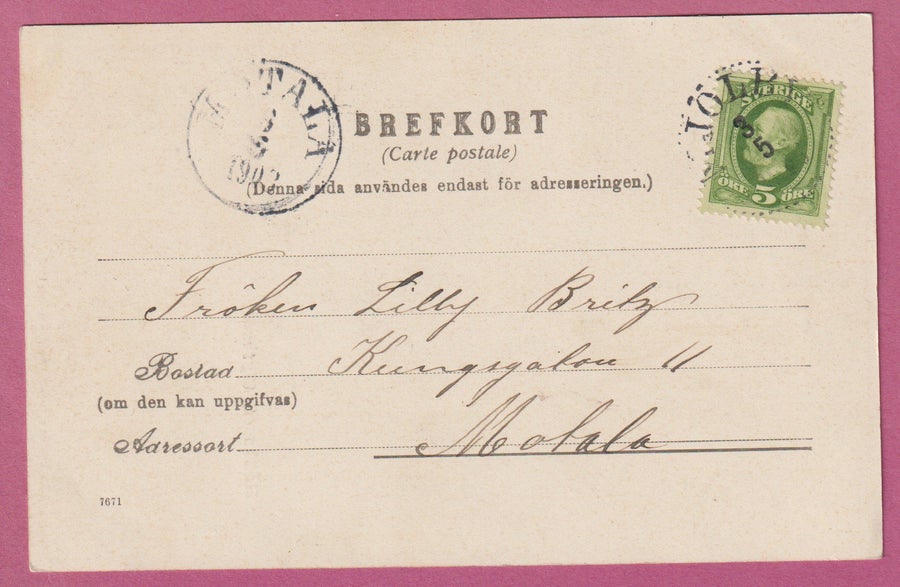 MOTALA
BREFKORT
(Carte postale)
(Denna sida användes endast för adresseringen.)
SVERIGE
ÖRE 5 ÖRE
Fröken Lilly Britz
Bostad Kungsgatan 11
(om den kan uppgifvas)
Adressort Motala
7671